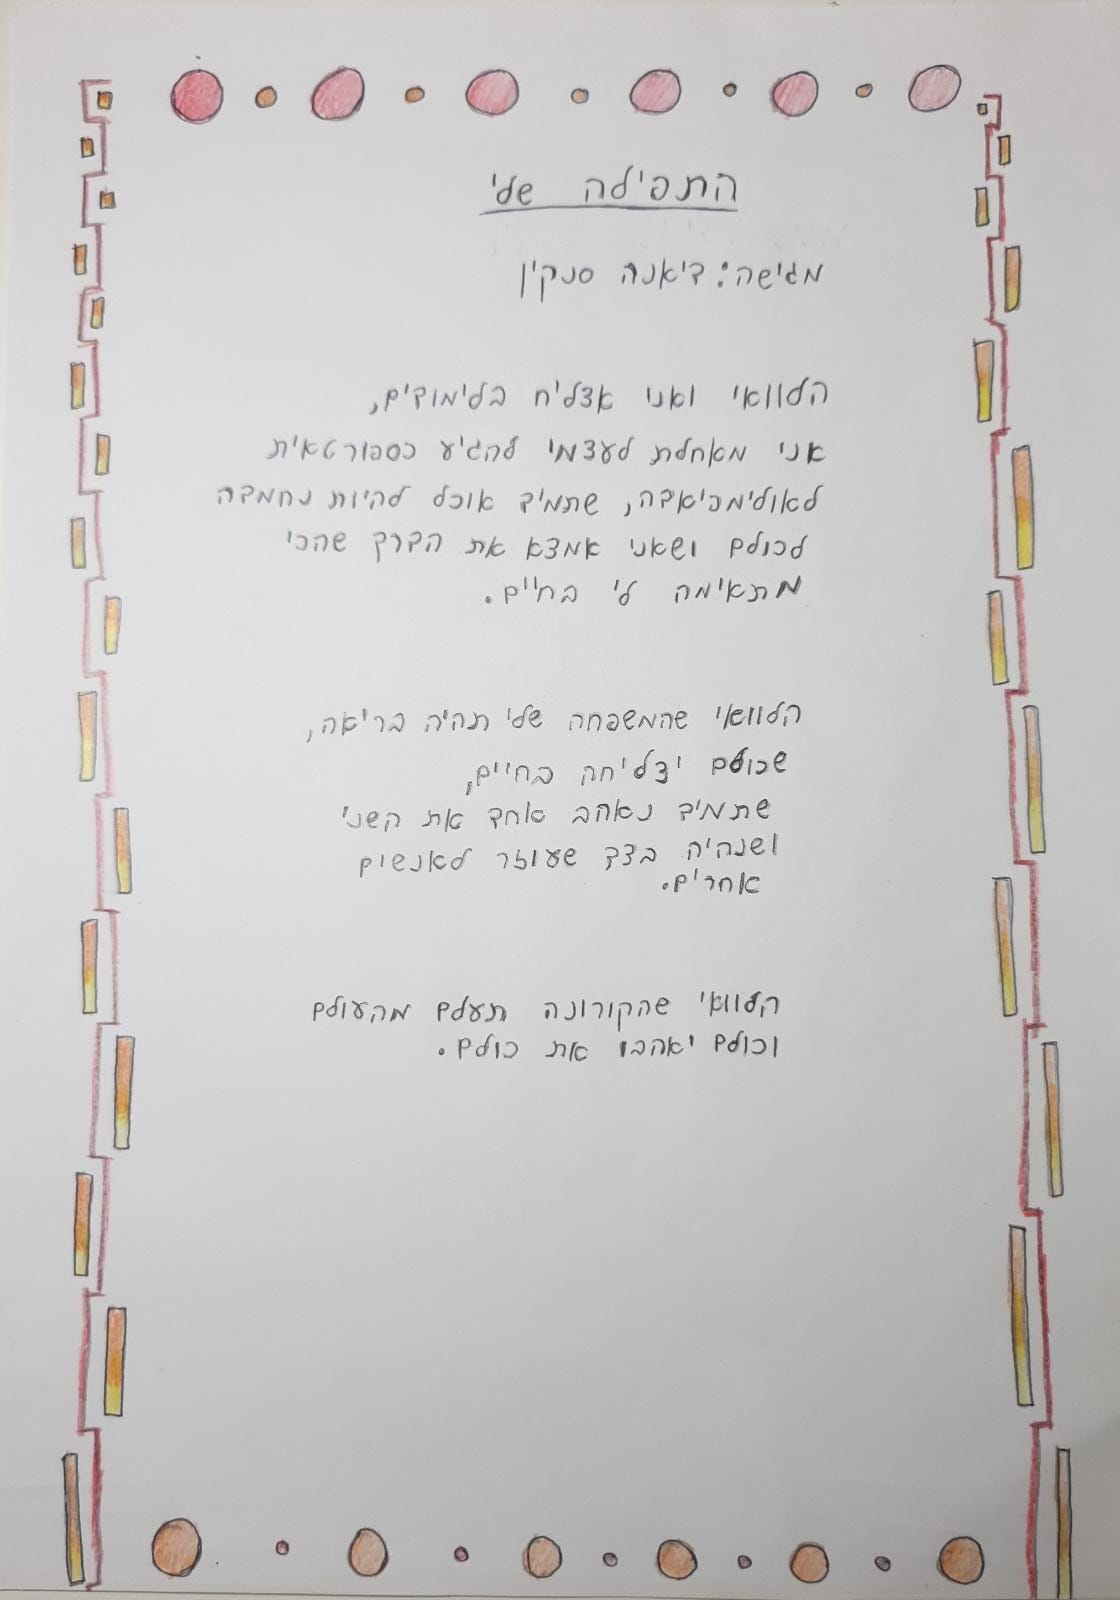 התפילה שלי
מגישה: דיאנה סנקין
הלוואי ואני אצליח בלימודים,
אני מאחלת לעצמי להגיע כספורטאית
לאולימפיאדה, שתמיד אוכל להיות נחמדה
לכולם ושאני אמצא את הדרך שהכי
מתאימה לי בחיים.
הלוואי שהמשפחה שלי תהיה בריאה,
שכולם יצליחה בחיים,
שתמיד נאהב אחד את השני
ושנהיה בצד שעוזר לאנשים
אחרים.
הלוואי שהקורונה תעלם מהעולם
וכולם יאהבו את כולם.